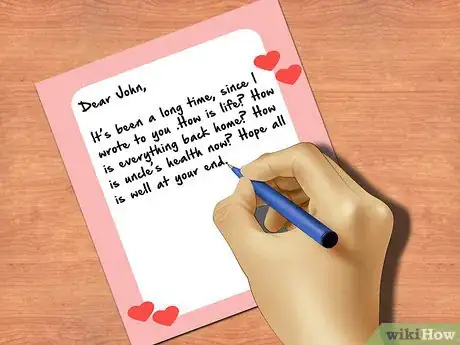 Dear John,
It's been a long time, since I
wrote to you .How is life? How
is everything back home? How
is uncle's health now? Hope all
is well at your end.
wikiHow